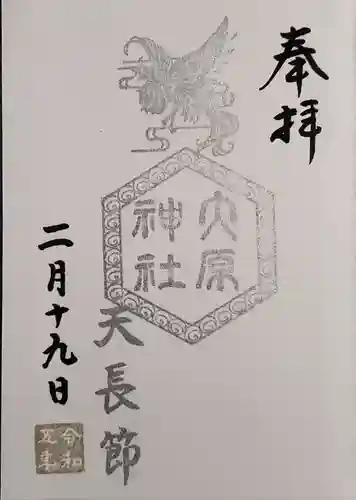 奉拝
大原
神社
天長節
二月十九日
令和
五年